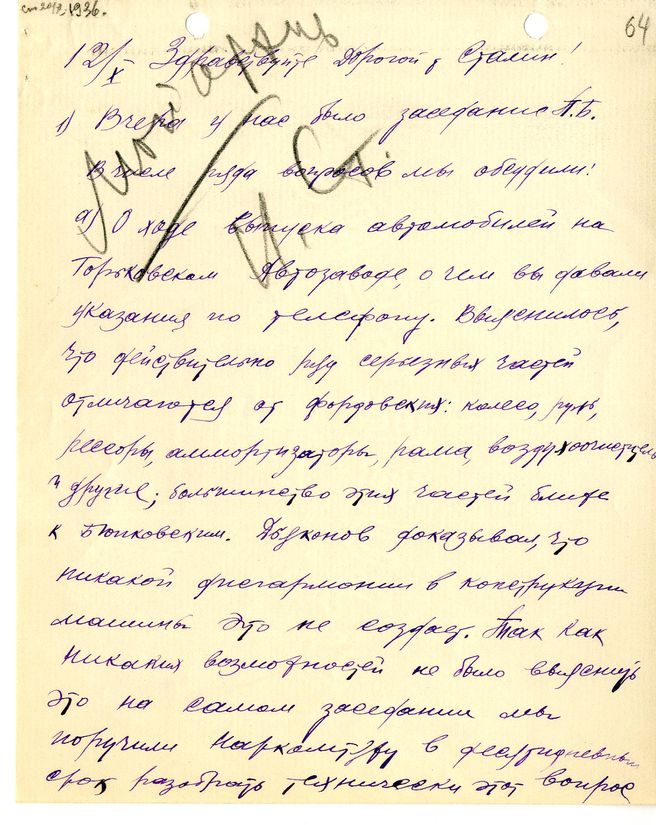 1936.
64
Мой архив
И. Ст.
12/X – Здравствуйте Дорогой т Сталин!
1) Вчера у нас было заседание П.Б.
В числе ряда вопросов мы обсудили:
а) О ходе выпуска автомобилей на
Горьковском Автозаводе, о чем вы давали
указания по телефону. Выяснилось,
что действительно ряд серьезных частей
отличаются от фордовских: колесо, руль,
рессоры, аммортизаторы, рама, воздухоочиститель
и другие; большинство этих частей ближе
к Бюиковским. Дьяконов доказывал, что
никакой дисгармонии в конструкции
машины это не создает. Так как
никаких возможностей не было выяснить
это на самом заседании мы
поручили Наркомтяжу в десятидневный
срок разобрать технически этот вопрос